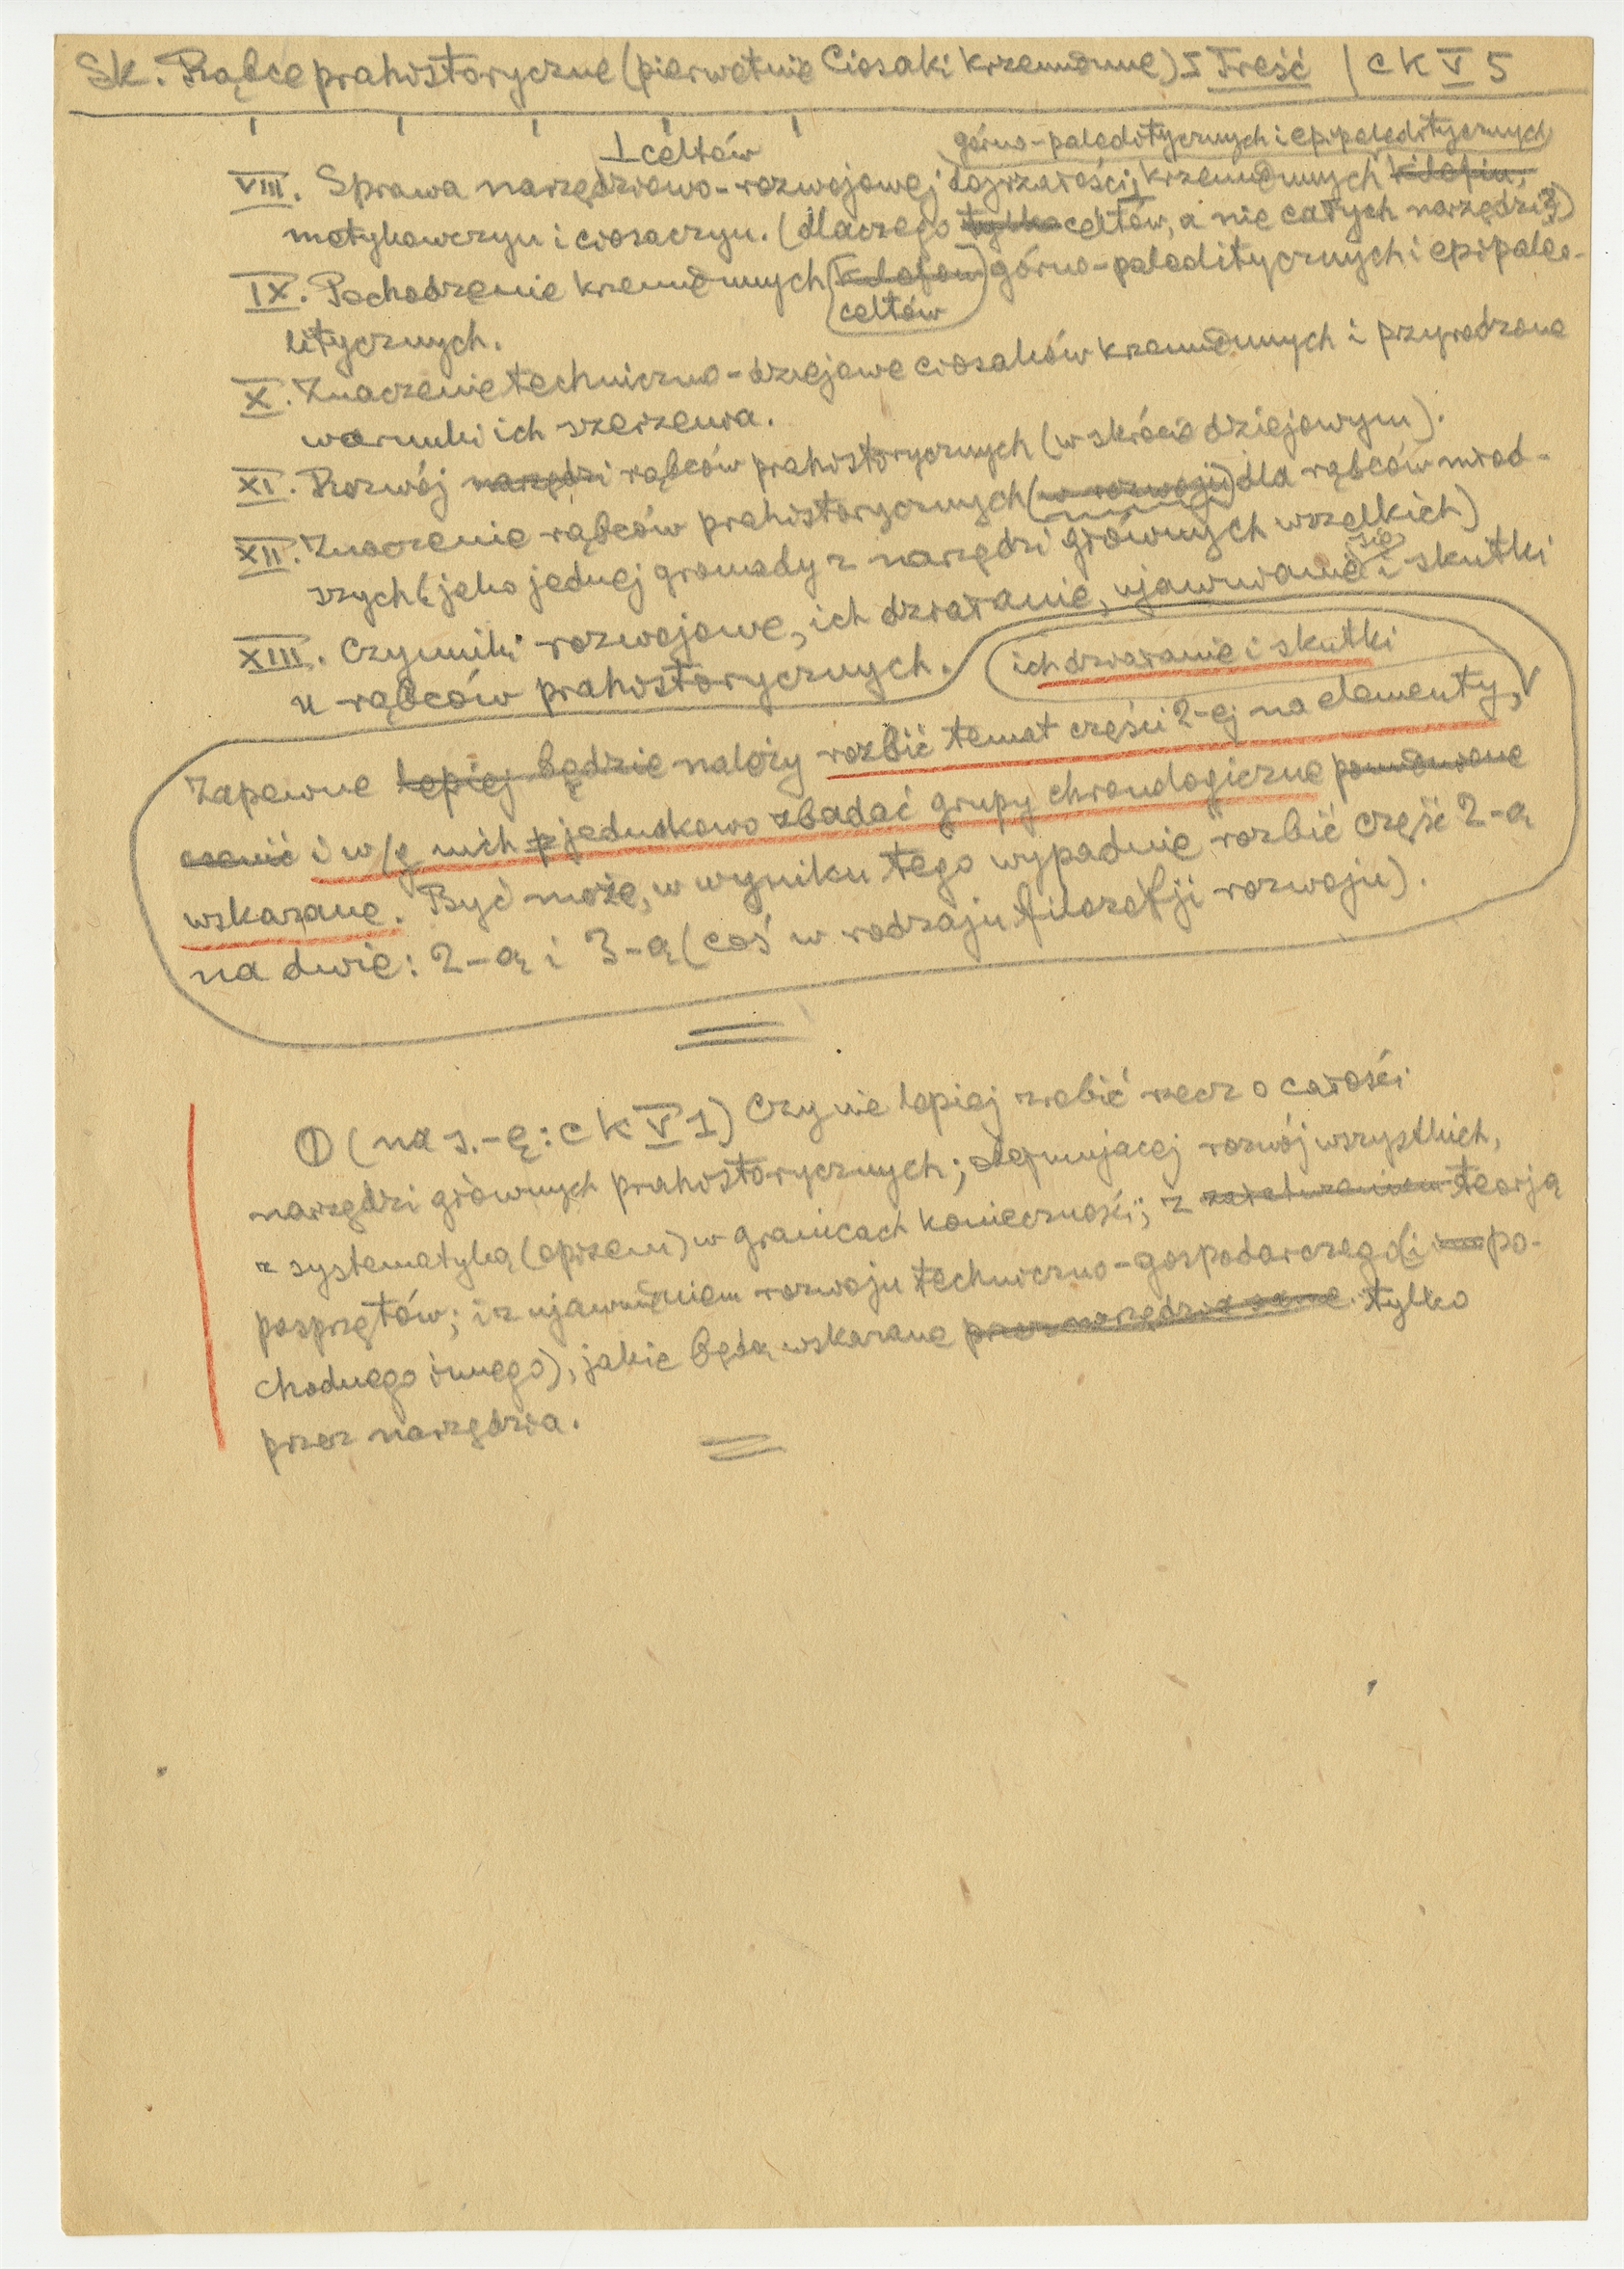 Sk. Rąbce prahistoryczne (pierwotnie Ciosaki krzemienne) I Treść | C K V 5
⊥ celtów górno-paleolitycznych i epipaleolitycznych
VIII. Sprawa narzędziowo-rozwojowej dojrzałości, krzemiennych
motykowczyn i ciosaczyn. (dlaczego tylko celtów, a nie całych narzędzi?)
IX. Pochodzenie krzemiennych górno-paleolitycznych i epipaleo-
celtów
litycznych.
X. Znaczenie techniczno-dziejowe ciosaków krzemiennych i przyrodzone
warunki ich szerzenia.
XI. Rozwój narzędzi rąbców prahistorycznych (w skrócie dziejowym).
XII. Znaczenie rąbców prahistorycznych (w rozwoju) dla rąbców młod-
szych (jako jednej gromady z narzędzi głównych wszelkich)
się
XIII. Czynniki rozwojowe, ich działanie, ujawnianie i skutki
u rąbców prahistorycznych.
ich działanie i skutki
Zapewne lepiej będzie należy rozbić temat części 2-ej na elementy, V
i w/g nich jednakowo zbadać grupy chronologiczne
wskazane. Być może, w wyniku tego wypadnie rozbić część 2-ą
na dwie: 2-ą i 3-ą (coś w rodzaju filozofji rozwoju).
① (na s.-ę: C K V 1) Czy nie lepiej zrobić rzecz o całości
narzędzi głównych prahistorycznych; obejmującej rozwój wszystkich,
z systematyką (opisem) w granicach konieczności; z teorją
posprzętów; i z ujawnieniem rozwoju techniczno-gospodarczego (i po-
chodnego innego), jakie będą wskazane przez narzędzia same tylko
przez narzędzia.